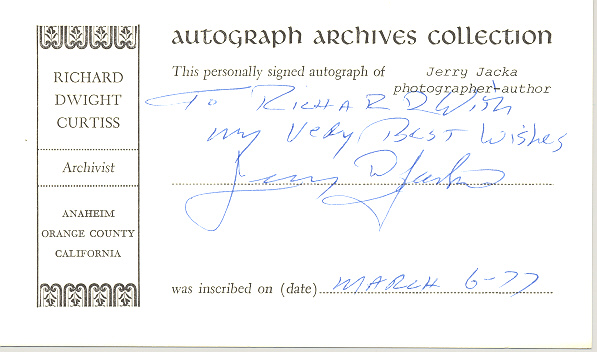 RICHARD
DWIGHT
CURTISS
Archivist
ANAHEIM
ORANGE COUNTY
CALIFORNIA
autograph archives collection
This personally signed autograph of Jerry Jacka
photographer-author
To RICHARD With
my Very Best Wishes
Jerry D Jacka
was inscribed on (date) MARCH 6-77